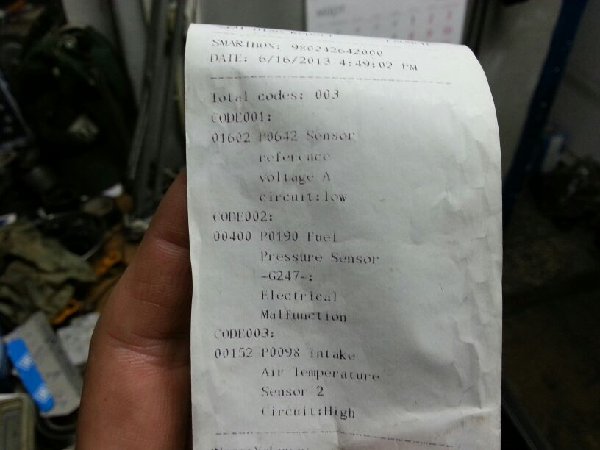 SMARTBOX: 980242642000
DATE: 6/16/2013 4:49:02 PM
Total codes: 003
CODE001:
01602 P0642 Sensor
reference
voltage A
circuit:low
CODE002:
00400 P0190 Fuel
Pressure Sensor
-G247-:
Electrical
Malfunction
CODE003:
00152 P0098 Intake
Air Temperature
Sensor 2
Circuit:High